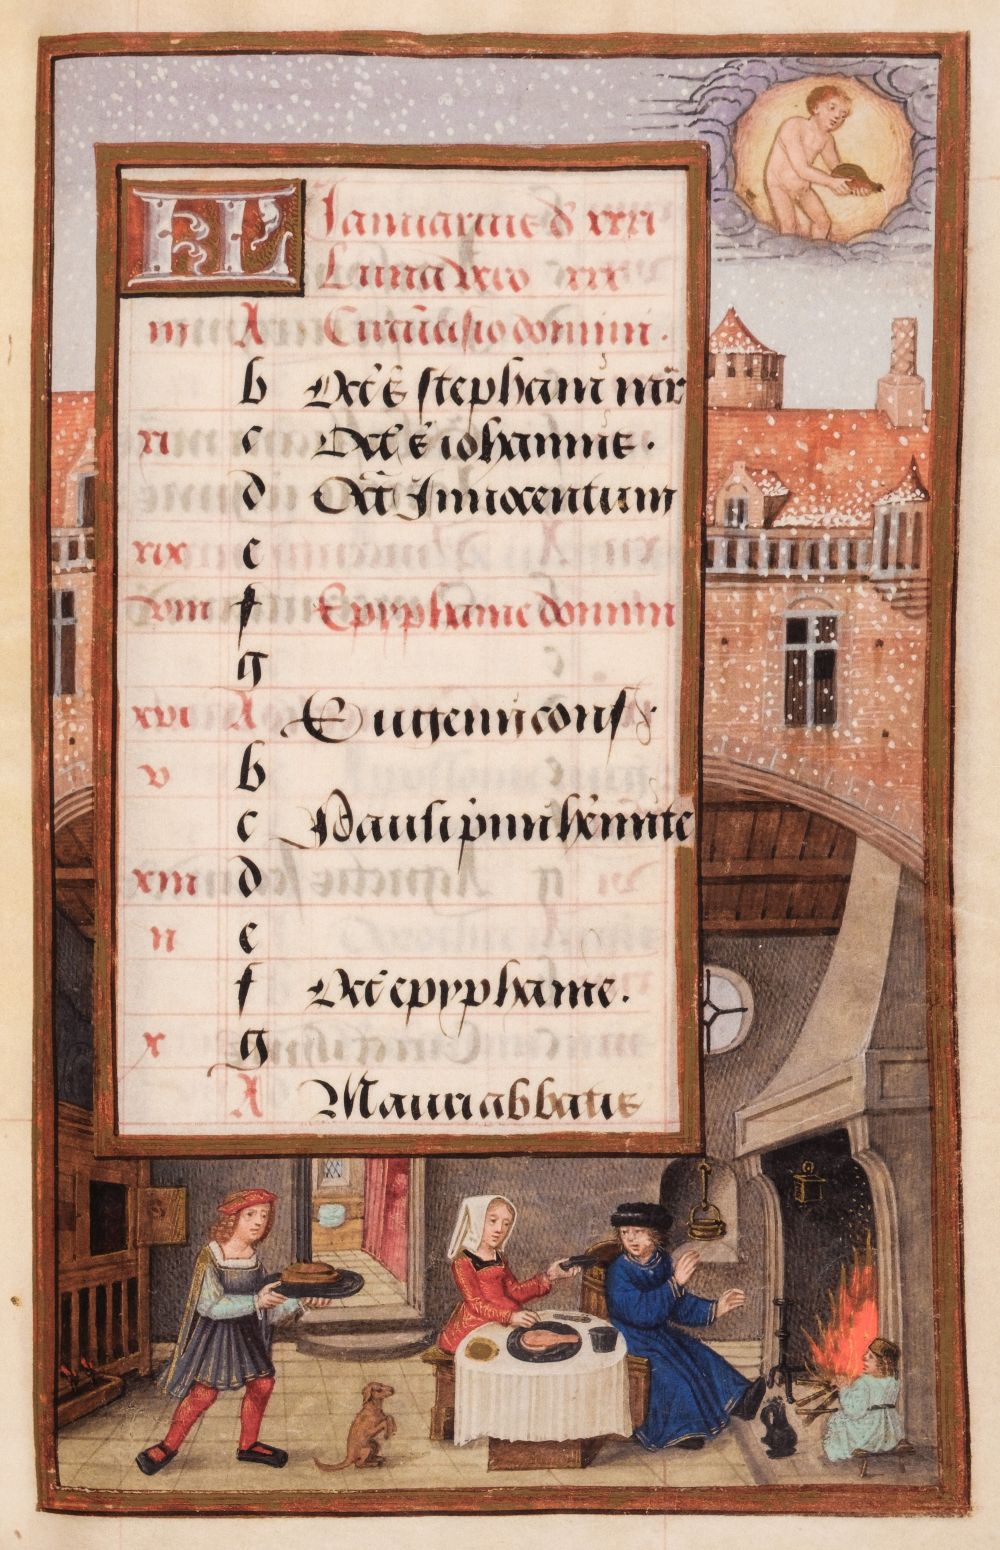 KL Januarius d xxxi
Luna vero xxx
iii A Circu̅cisio domini.
b Oct̅ s̅ stephani mr̅
xi c Oct̅ s̅ iohannis.
d Oct̅ Innocentum
xix e
viii f Epyphanie domini
g
xvi A Eugenii conf
v b
c Pauli primi he̅mite
xiii d
ii e
f Oct̅ epyphanie.
x g
A Mauri abbatis